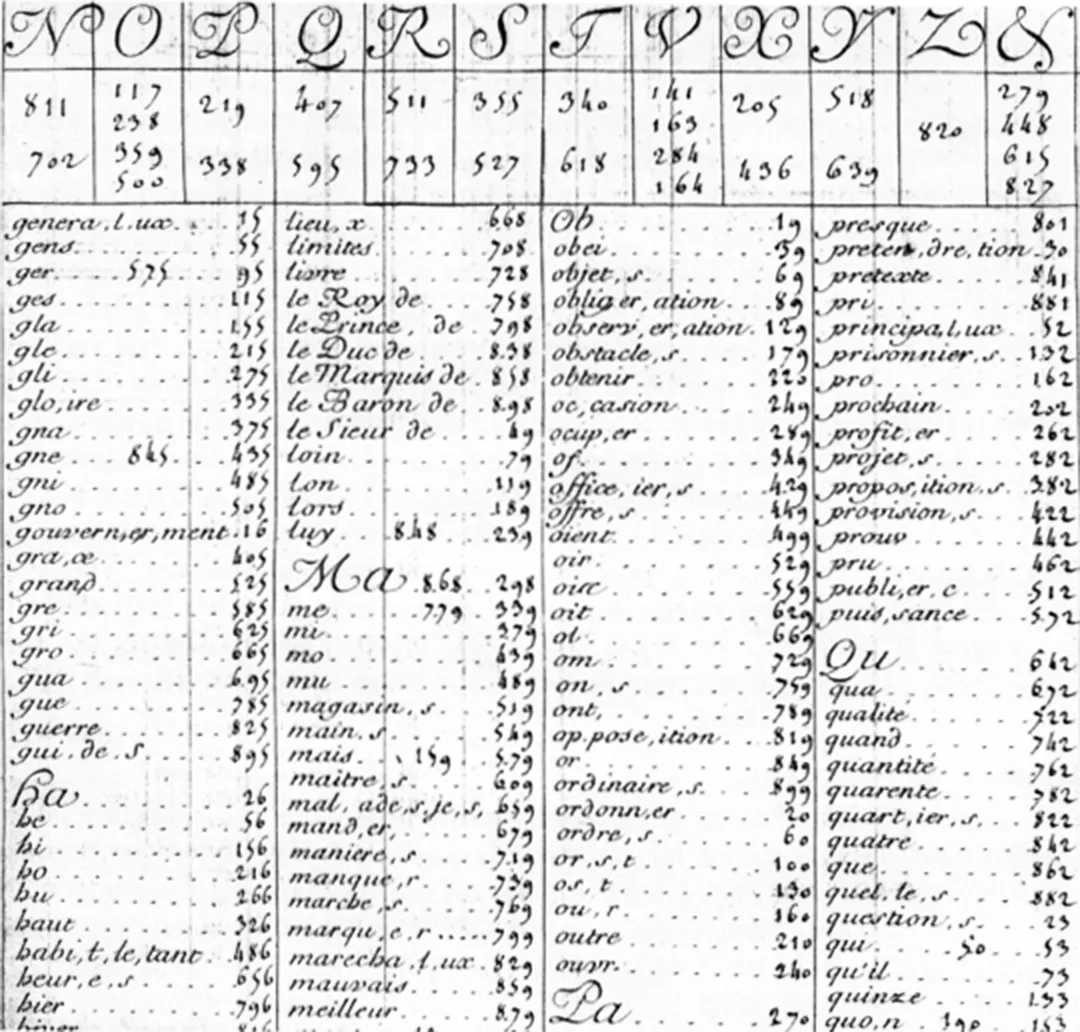 N O P Q R S T V X Y Z &
811 117 219 407 511 355 340 141 205 518 820 279
238 163 448
702 359 338 595 733 527 618 284 436 639 615
500 164 827
genera,l.ux 15
gens 55
ger 575 95
ges 115
gla 155
gle 215
gli 275
glo,ire 335
gna 375
gne 845 435
gni 485
gno 505
gouvern,er,ment 16
gra,œ 405
grand 525
gre 585
gri 625
gro 665
gua 695
gue 785
guerre 825
gui.de.s 895
ha 26
he 56
hi 156
ho 216
hu 266
haut 326
habi,t,le,tant 486
heur,e,s 656
hier 796
lieu,x 668
limites 708
livre 728
le Roy de 758
le Prince, de 798
le Duc de 838
le Marquis de 858
le Baron de 898
le Sieur de 49
loin 79
lon 119
lors 189
luy 848 239
Ma 868 298
me 779 339
mi 379
mo 439
mu 489
magasin,s 519
main,s 549
mais 159 579
maitre,s 609
mal,ade,s,je,s, 659
mand,er, 679
maniere,s 719
manque,r 739
marche,s 769
marqu,e,r 799
marecha,l,ux 829
mauvais 859
meilleur 879
Ob 19
obei 39
objet,s 69
oblig,er,ation 89
observ,er,ation 129
obstacle,s 179
obtenir 220
oc,casion 249
ocup,er 289
of 349
office,ier,s 429
offre,s 449
oient 499
oir 529
oise 559
oit 629
ol 669
om 729
on,s 759
ont, 789
op.pose,ition 819
or 849
ordinaire,s 899
ordonn,er 20
ordre,s 60
or,s,t 100
os,t 130
ou,r 160
outre 210
ouvr 240
Pa 270
presque 801
preten,dre,tion 30
pretexte 841
pri 881
principa,l,ux 52
prisonnier,s 132
pro 162
prochain 202
profit,er 262
projet,s 282
propos,ition,s 382
provision,s 422
prouv 442
pru 462
publi,er,c 512
puis,sance 572
Qu 642
qua 672
qualité 722
quand 742
quantité 762
quarente 782
quart,ier,s 822
quatre 842
que 862
quel,le,s 882
question,s 23
qui 50 53
qu'il 73
quinze 133
quo,n 190 153